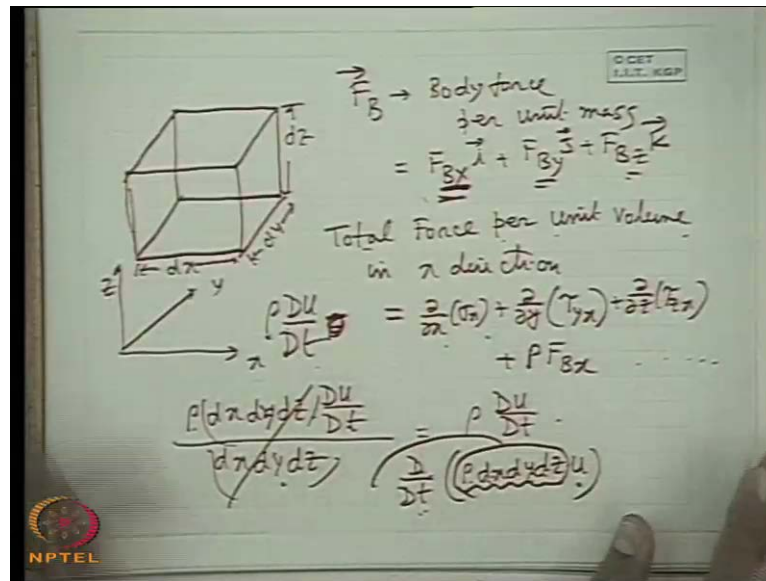 © CET
I.I.T. KGP
F⃗_B → Body force
per unit mass
= F_Bx i⃗ + F_By j⃗ + F_Bz k⃗
dz
dy
dx
Total Force per unit volume
in x direction
z
y
x
ρ DU/Dt = ∂/∂x (σx) + ∂/∂y (τyx) + ∂/∂z (τzx)
+ ρ F_Bx .....
ρ(dx dy dz) DU/Dt / (dx dy dz) = ρ DU/Dt .
D/Dt (ρ dx dy dz U)
NPTEL